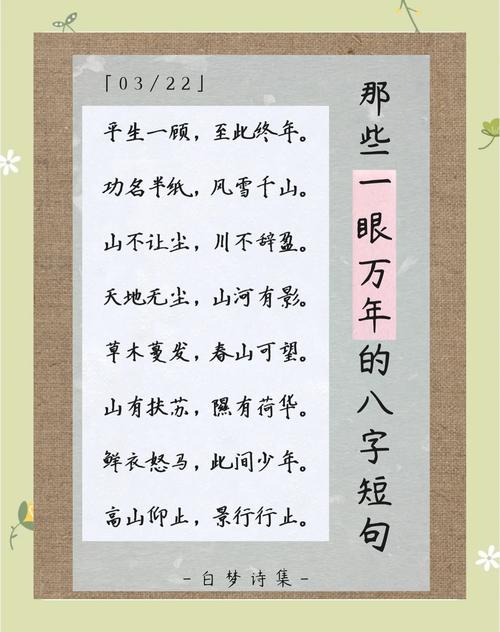 「03/22」
那些一眼万年的八字短句
平生一顾，至此终年。
功名半纸，风雪千山。
山不让尘，川不辞盈。
天地无尘，山河有影。
草木蔓发，春山可望。
山有扶苏，隰有荷华。
鲜衣怒马，此间少年。
高山仰止，景行行止。
-白梦诗集-